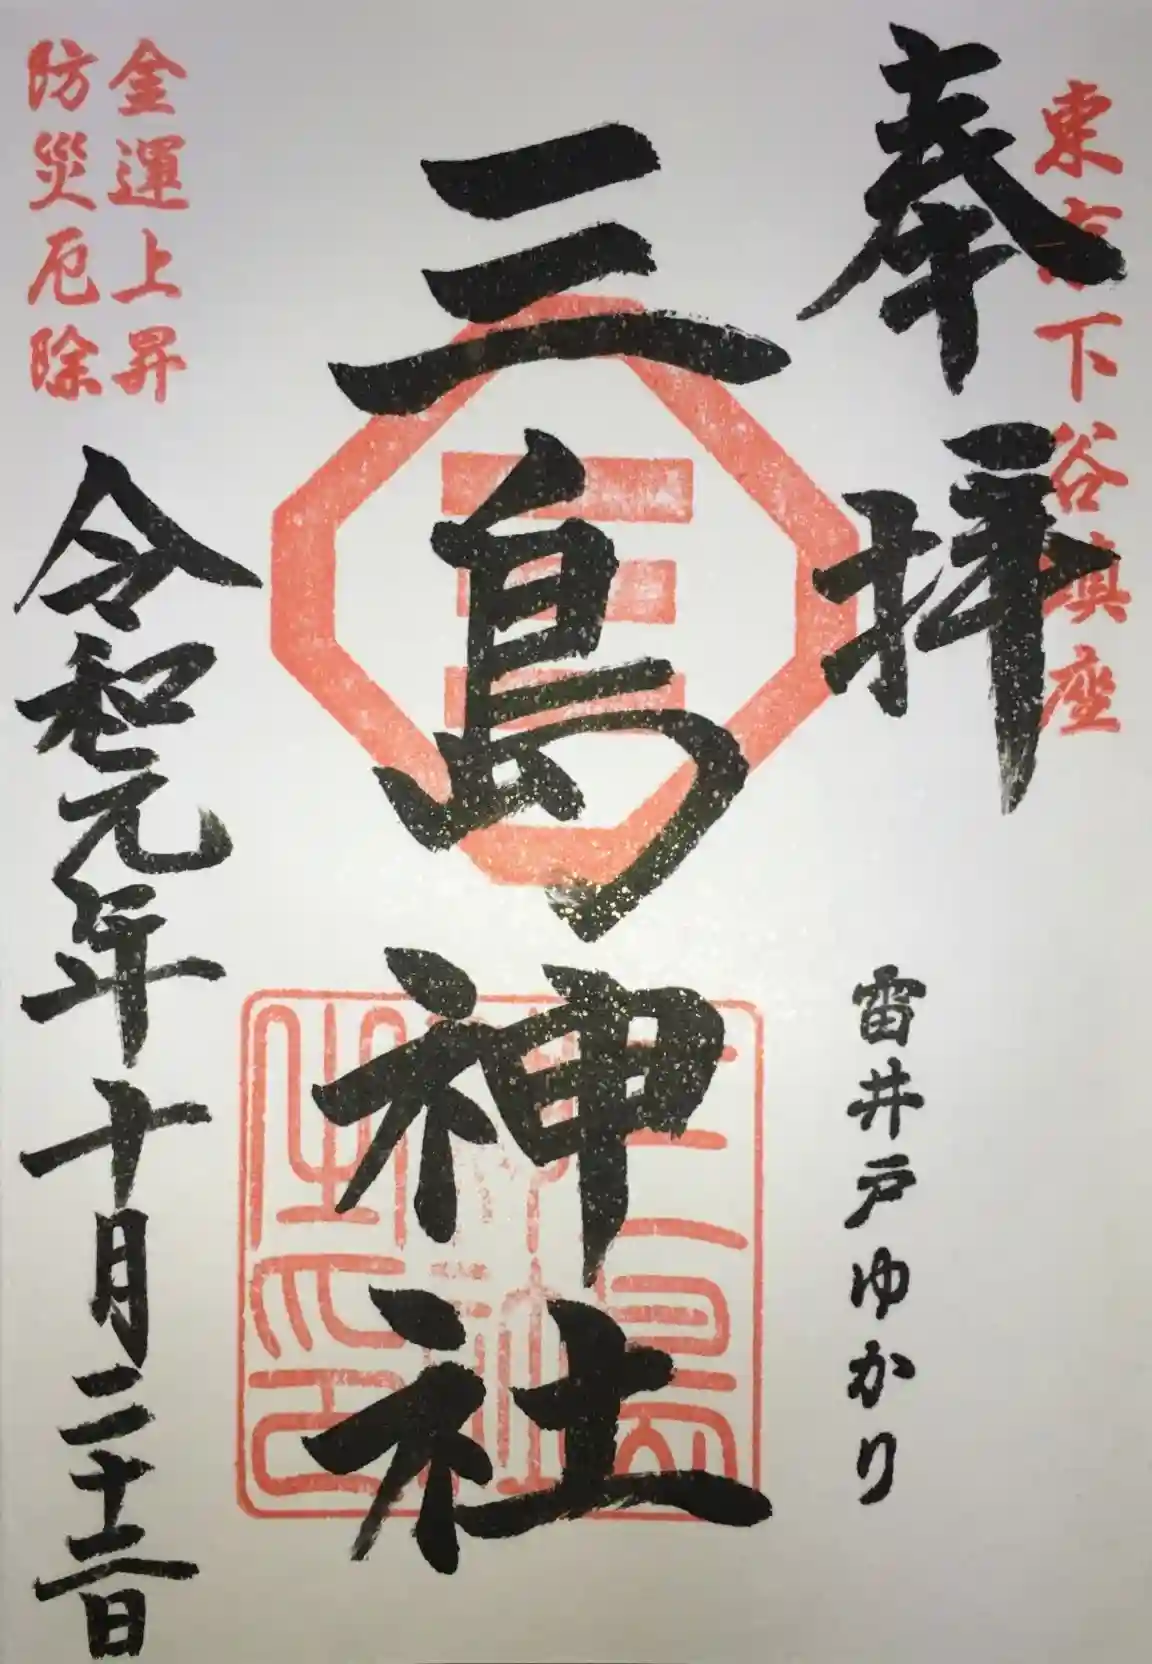 東京下谷鎮座
奉拝
雷井戸ゆかり
三島神社
三島
神社
之印
金運上昇
防災厄除
令和元年十月二十二日